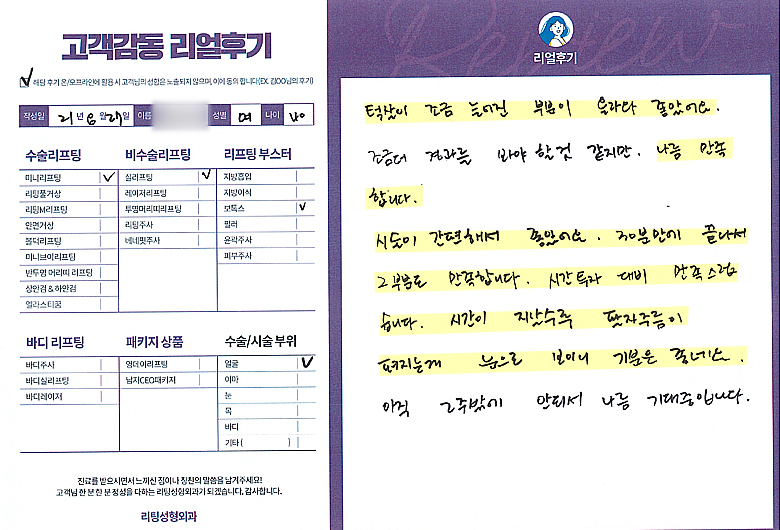 고객감동 리얼후기
해당 후기 온/오프라인에 활용 시 고객님의 성함은 노출되지 않으며, 이에 동의 합니다(EX. 김OO님의 후기)
작성일 21년 6월 27일 이름 성별 여 나이
수술리프팅
미니리프팅
리팅풀거상
리팅M리프팅
안면거상
올덕리프팅
미니브이리프팅
반투명 머리띠 리프팅
상안검 & 하안검
엘라스티꿈
비수술리프팅
실리프팅
레이저리프팅
투명머리띠리프팅
리팅주사
베네핏주사
리프팅 부스터
지방흡입
지방이식
보톡스
필러
윤곽주사
피부주사
바디 리프팅
바디주사
바디실리프팅
바디레이저
패키지 상품
영데이리프팅
남자CEO패키지
수술/시술 부위
얼굴
이마
눈
목
바디
기타 ( )
진료를 받으시면서 느끼신 점이나 칭찬의 말씀을 남겨주세요!
고객님 한 분 한 분 정성을 다하는 리팅성형외과가 되겠습니다. 감사합니다.
리팅성형외과
Review
리얼후기
턱살이 조금 늘어진 부분이 올라가 좋았어요.
조금더 경과를 봐야 할것 같지만. 나름 만족
합니다.
시술이 간편해서 좋았어요. 30분안에 끝나서
그부분도 만족합니다. 시간투자 대비 만족스럽
습니다. 시간이 지날수록 팔자주름이
펴지는게 눈으로 보이니 기분은 좋네요.
아직 2주밖에 안되서 나름 기대중입니다.